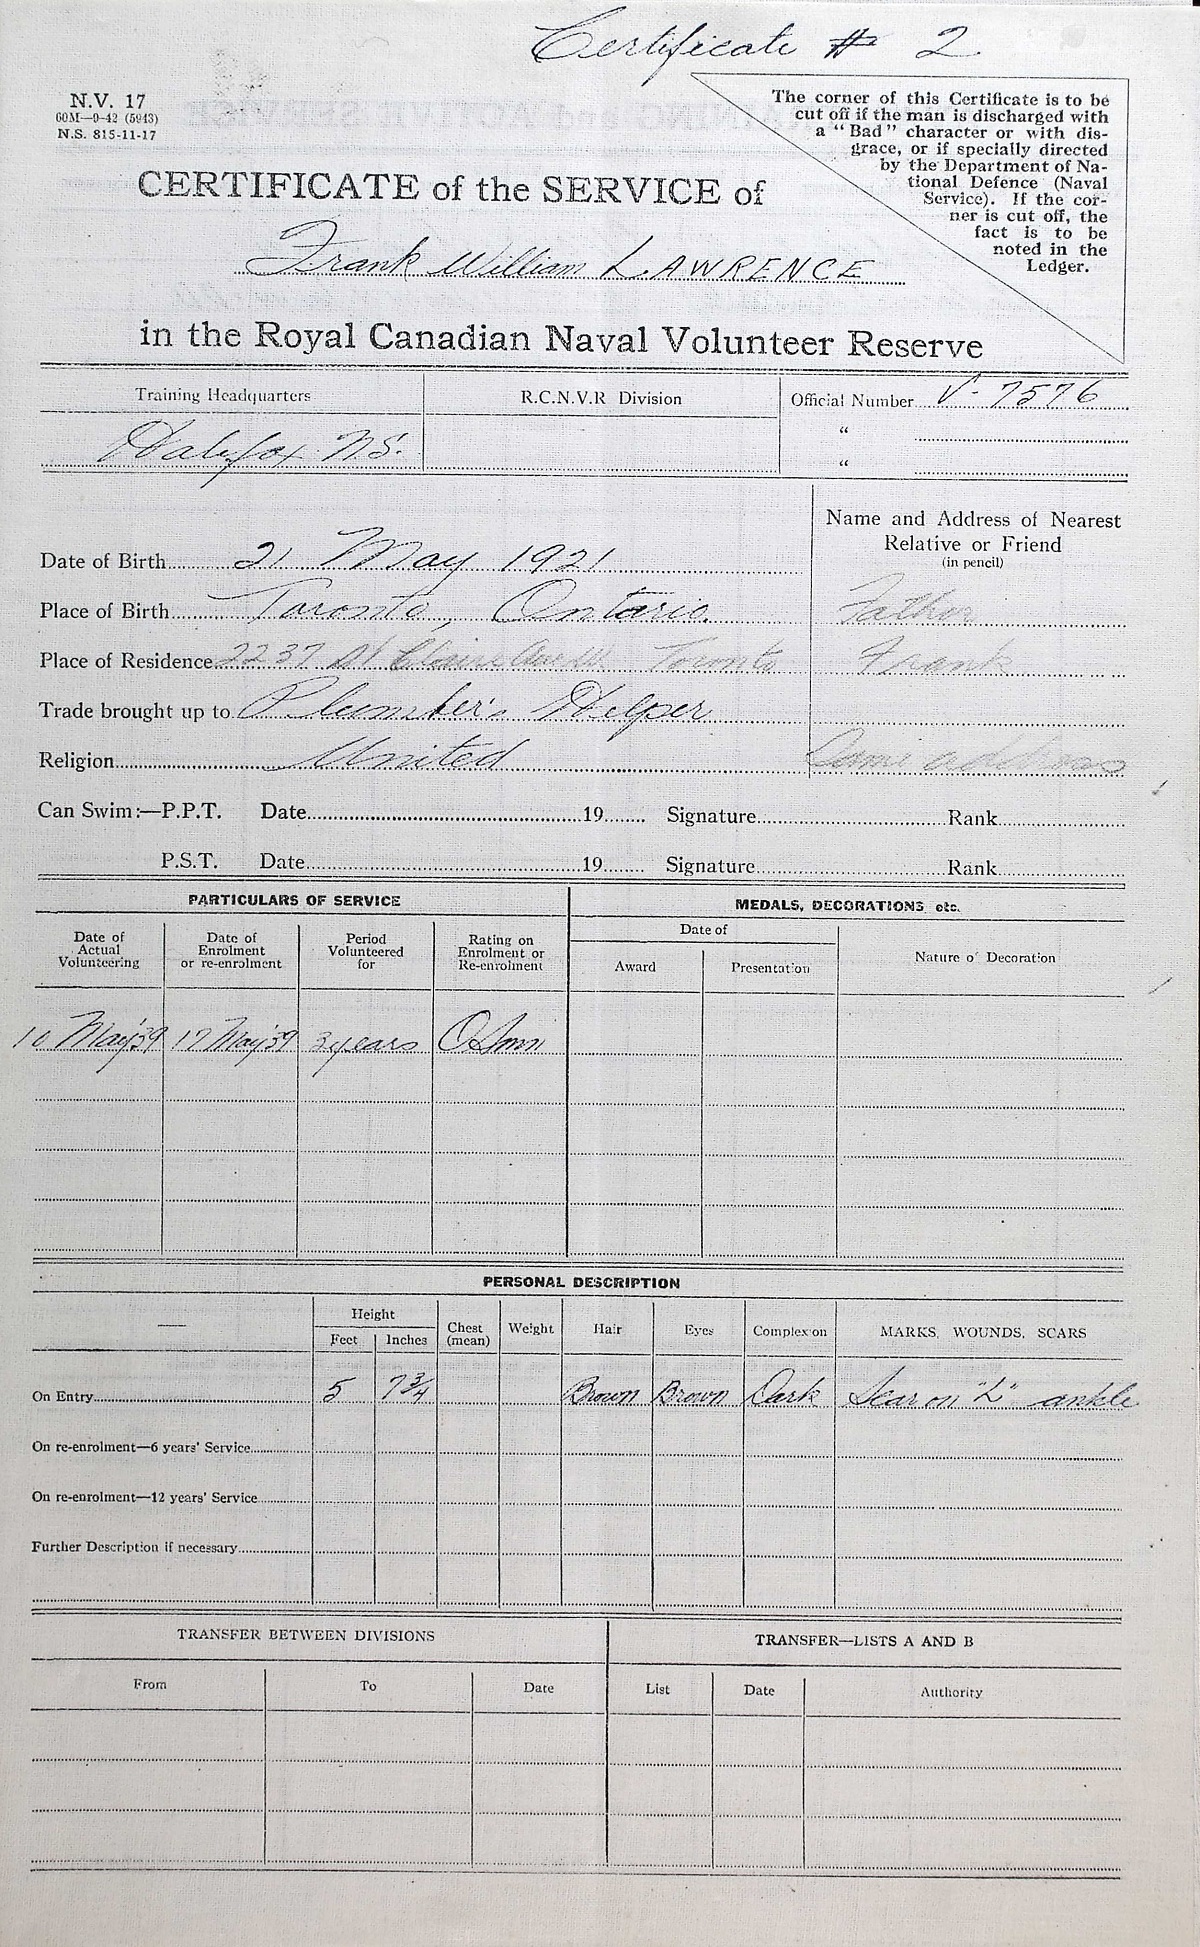 Certificate # 2
N.V. 17
60M—9-42 (5943)
N.S. 815-11-17
The corner of this Certificate is to be
cut off if the man is discharged with
a "Bad" character or with dis-
grace, or if specially directed
by the Department of Na-
tional Defence (Naval
Service). If the cor-
ner is cut off, the
fact is to be
noted in the
Ledger.
CERTIFICATE of the SERVICE of
Frank William LAWRENCE
in the Royal Canadian Naval Volunteer Reserve
Training Headquarters R.C.N.V.R Division Official Number V-7576
Halifax N.S. "
"
Name and Address of Nearest
Relative or Friend
(in pencil)
Date of Birth 21 May 1921
Place of Birth Toronto, Ontario. Father
Place of Residence 2237 St Claire Ave W. Toronto Frank
Trade brought up to Plumber's Helper
Religion United Same address
Can Swim:—P.P.T. Date 19 Signature Rank
P.S.T. Date 19 Signature Rank
PARTICULARS OF SERVICE MEDALS, DECORATIONS etc.
Date of Actual Volunteering Date of Enrolment or re-enrolment Period Volunteered for Rating on Enrolment or Re-enrolment Date of Award Presentation Nature of Decoration
10 May '39 17 May '39 3 years
PERSONAL DESCRIPTION
Height Feet Inches Chest (mean) Weight Hair Eyes Complexion MARKS, WOUNDS, SCARS
On Entry 5 7 3/4 Brown Brown Dark Scar on "L" ankle
On re-enrolment—6 years' Service
On re-enrolment—12 years' Service
Further Description if necessary
TRANSFER BETWEEN DIVISIONS TRANSFER—LISTS A AND B
From To Date List Date Authority